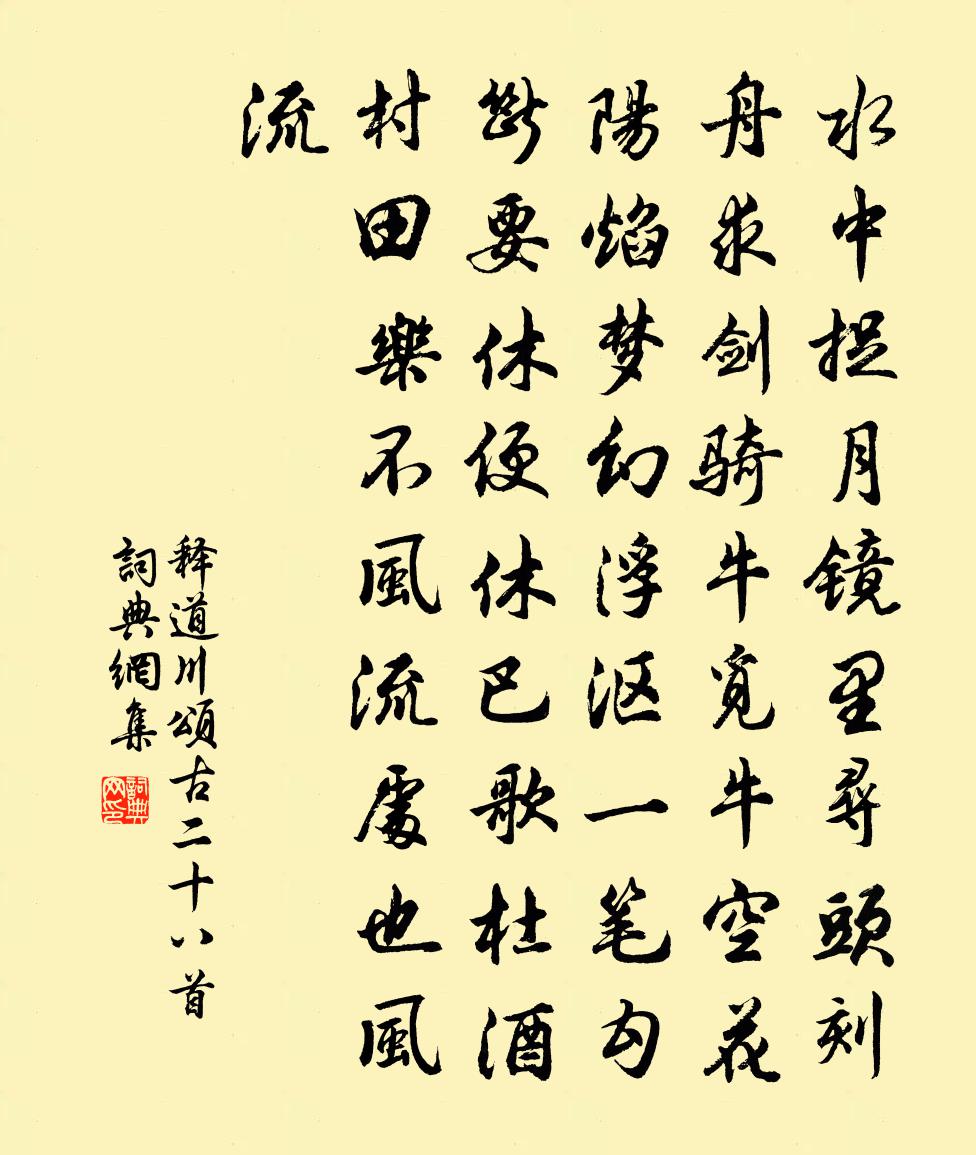 水中捉月镜里尋頭刻
舟求剑骑牛觅牛空花
陽焰梦幻浮沤一笔勾
斷要休便休巴歌杜酒
村田樂不風流處也風
流
释道川頌古二十八首
詞典網集
詞典网印